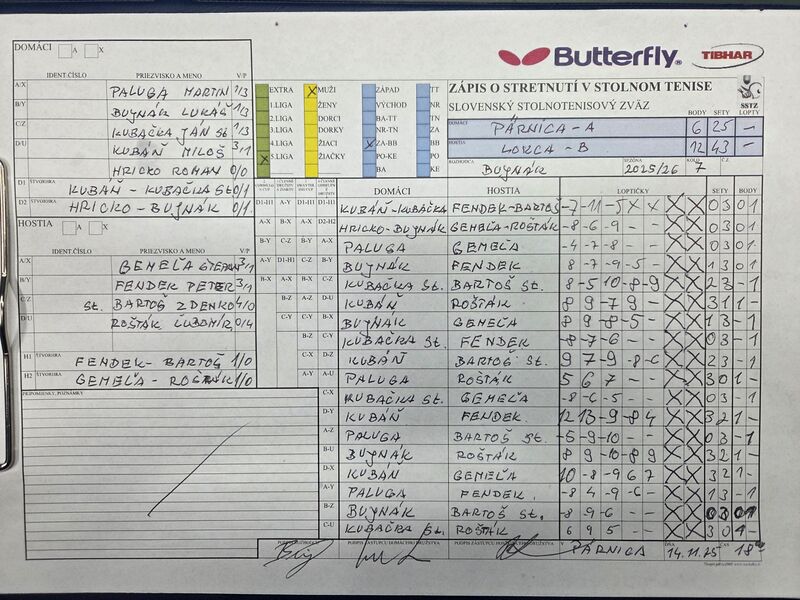 Butterfly
TIBHAR
DOMÁCI A X
IDENT.ČÍSLO PRIEZVISKO A MENO V/P
A/X PALUGA MARTIN 1/3
B/Y BUJNÁK LUKÁŠ 1/3
C/Z KUBAČKA JÁN St 1/3
D/U KUBÁŇ MILOŠ 3/1
HRICKO ROMAN 0/0
D1 ŠTVORHRA KUBÁŇ - KUBAČKA St 0/1
D2 ŠTVORHRA HRICKO - BUJNÁK 0/1
HOSTIA A X
IDENT.ČÍSLO PRIEZVISKO A MENO V/P
A/X GEMEĽA ŠTEFAN 3/1
B/Y FENDEK PETER 3/1
C/Z St. BARTOŠ ZDENKO 4/0
D/U ROŠŤÁK ĽUBOMÍR 0/4
H1 ŠTVORHRA FENDEK - BARTOŠ 1/0
H2 GEMEĽA - ROŠŤÁK 1/0
PRIPOMIENKY, POZNÁMKY
EXTRA X MUŽI ZÁPAD TT
1.LIGA ŽENY VÝCHOD NR
2.LIGA DORCI BA-TT TN
3.LIGA DORKY NR-TN ZA
4.LIGA ŽIACI X ZA-BB BB
X 5.LIGA ŽIAČKY PO-KE PO
BA KE
ZÁPIS O STRETNUTÍ V STOLNOM TENISE
SLOVENSKÝ STOLNOTENISOVÝ ZVÄZ
SSTZ
BODY SETY LOPTY
DOMÁCI PÁRNICA - A 6 25 -
HOSTIA LOKCA - B 12 43 -
ROZHODCA BUJNÁK SEZÓNA 2025/26 KOLO 7 Č.Z.
DOMÁCI HOSTIA LOPTIČKY SETY BODY
D1-H1 A-Y D1-H1 D1-H1 KUBÁŇ-KUBAČKA FENDEK-BARTOŠ -7 -11 -5 X X X X 0 3 0 1
A-X B-X A-X D2-H2 HRICKO-BUJNÁK GEMEĽA-ROŠŤÁK -8 -6 -9 - - X X 0 3 0 1
B-Y C-Z B-Y A-X PALUGA GEMEĽA -4 -7 -8 - - X X 0 3 0 1
A-Y D1-H1 C-Z B-Y BUJNÁK FENDEK 8 -7 -9 -5 - X X 1 3 0 1
B-X A-X B-X C-Z KUBAČKA St. BARTOŠ St. 8 -5 10 -8 -9 X X 2 3 - 1
B-Z A-Z D-U KUBÁŇ ROŠŤÁK 8 9 -7 9 - X X 3 1 1 -
C-Y C-Y B-X BUJNÁK GEMEĽA 8 9 -8 -5 - X X 1 3 - 1
B-Z C-Y KUBAČKA St. FENDEK -8 -7 -6 - - X X 0 3 - 1
C-X D-Z KUBÁŇ BARTOŠ St. 9 7 -9 -8 -6 X X 2 3 - 1
A-Y A-U PALUGA ROŠŤÁK 5 6 7 - - X X 3 0 1 -
C-X KUBAČKA St. GEMEĽA -8 -6 -5 - - X X 0 3 - 1
D-Y KUBÁŇ FENDEK 12 13 -9 -8 4 X X 3 2 1 -
A-Z PALUGA BARTOŠ St. -5 -9 -10 - - X X 0 3 - 1
B-U BUJNÁK ROŠŤÁK 8 9 -10 -8 9 X X 3 2 1 -
D-X KUBÁŇ GEMEĽA 10 -8 -9 6 7 X X 3 2 1 -
A-Y PALUGA FENDEK -8 4 -9 -6 - X X 1 3 - 1
B-Z BUJNÁK BARTOŠ St. -8 -9 -6 - - X X 0 3 0 1
C-U KUBAČKA St. ROŠŤÁK 6 9 5 - - X X 3 0 1 -
PODPIS ZÁSTUPCU DOMÁCEHO DRUŽSTVA
V PÁRNICA DŇA 14.11.25 ČAS 18⁰⁰